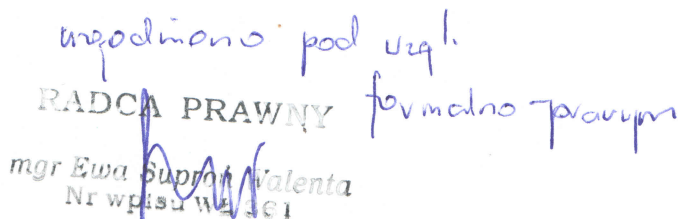 uzgodniono pod wzgl.
formalno-prawnym
RADCA PRAWNY
mgr Ewa Valenta
Nr wpisu